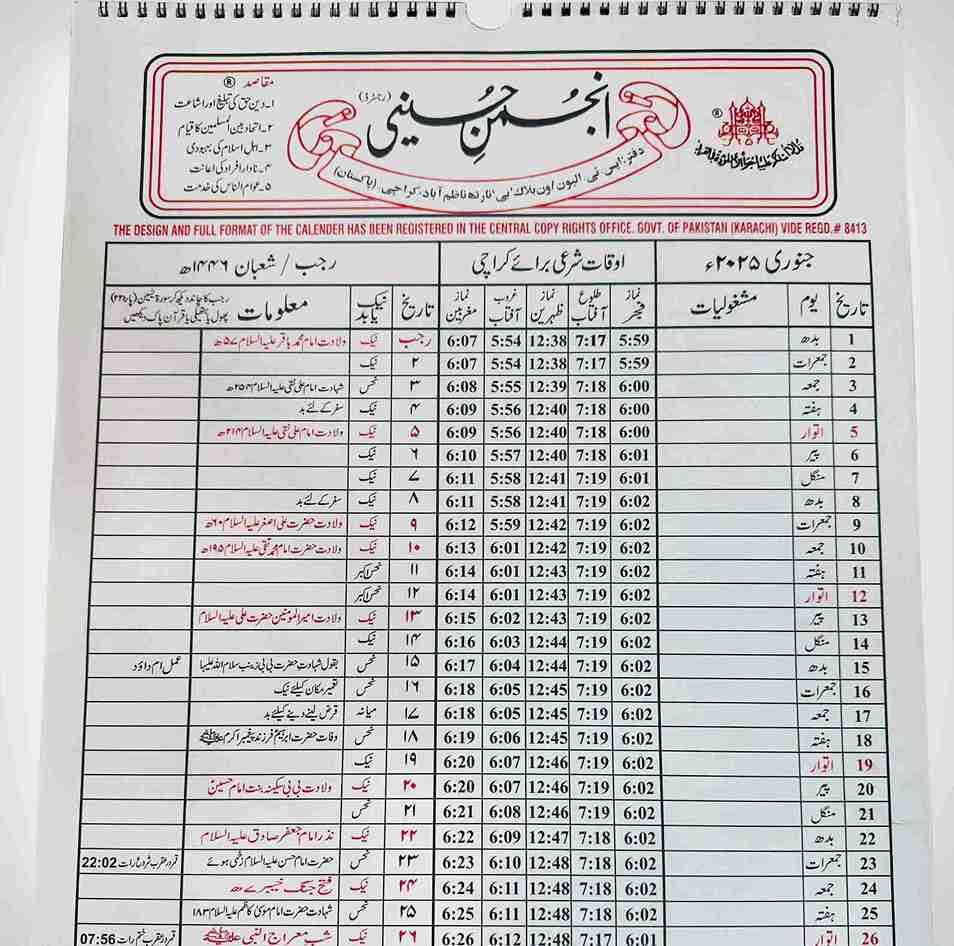 مقاصد ®
۱۔ دین حق کی تبلیغ اور اشاعت
۲۔ اتحاد بین المسلمین کا قیام
۳۔ اہل اسلام کی بہبودی
۴۔ نادار افراد کی اعانت
۵۔ عوام الناس کی خدمت
انجمنِ حسینی (رجسٹرڈ)
دفتر: ایس ٹی، الیون اون بلاک "بی" نارتھ ناظم آباد، کراچی۔ (پاکستان)
®
THE DESIGN AND FULL FORMAT OF THE CALENDER HAS BEEN REGISTERED IN THE CENTRAL COPY RIGHTS OFFICE. GOVT. OF PAKISTAN (KARACHI) VIDE REGD.# 8413
جنوری ۲۰۲۵ء اوقات شرعی برائے کراچی رجب / شعبان ۱۴۴۶ھ
تاریخ یوم مشغولیات نماز فجر طلوع آفتاب نماز ظہرین غروب آفتاب نماز مغربین تاریخ نیک یا بد معلومات رجب کا چاند دیکھ کر سورۃ یٰسین (پارہ ۲۲) پھول یا ہتھیلی یا قرآن پاک دیکھیں
1 بدھ 5:59 7:17 12:38 5:54 6:07 رجب نیک ولادت امام محمد باقر علیہ السلام ۵۷ھ
2 جمعرات 5:59 7:17 12:39 5:54 6:07 ۲ نیک
3 جمعہ 6:00 7:18 12:39 5:55 6:08 ۳ نحس شہادت امام علی نقی علیہ السلام ۲۵۴ھ
4 ہفتہ 6:00 7:18 12:40 5:56 6:09 ۴ نیک سفر کے لئے بد
5 اتوار 6:00 7:18 12:40 5:56 6:09 ۵ نیک ولادت امام علی نقی علیہ السلام ۲۱۴ھ
6 پیر 6:01 7:18 12:40 5:57 6:10 ۶ نیک
7 منگل 6:01 7:19 12:41 5:58 6:11 ۷ نیک
8 بدھ 6:02 7:19 12:41 5:58 6:11 ۸ نیک سفر کے لئے بد
9 جمعرات 6:02 7:19 12:42 5:59 6:12 ۹ نیک ولادت حضرت علی اصغر علیہ السلام ۶۰ھ
10 جمعہ 6:02 7:19 12:42 6:01 6:13 ۱۰ نیک ولادت حضرت امام محمد تقی علیہ السلام ۱۹۵ھ
11 ہفتہ 6:02 7:19 12:43 6:01 6:14 ۱۱ نحس اکبر
12 اتوار 6:02 7:19 12:43 6:01 6:14 ۱۲ نحس اکبر
13 پیر 6:02 7:19 12:43 6:02 6:15 ۱۳ نیک ولادت امیر المومنین حضرت علی علیہ السلام
14 منگل 6:02 7:19 12:44 6:03 6:16 ۱۴ نیک
15 بدھ 6:02 7:19 12:44 6:04 6:17 ۱۵ نحس بقول شہادت حضرت بی بی زینب سلام اللہ علیہا عمل ام داؤد
16 جمعرات 6:02 7:19 12:45 6:05 6:18 ۱۶ نحس تعمیر مکان کیلئے نیک
17 جمعہ 6:02 7:19 12:45 6:05 6:18 ۱۷ میانہ قرض لینے دینے کیلئے بد
18 ہفتہ 6:02 7:19 12:45 6:06 6:19 ۱۸ نحس وفات حضرت ابرہیمؑ فرزند پیغمبر اکرم ﷺ
19 اتوار 6:02 7:19 12:46 6:07 6:20 ۱۹ نیک
20 پیر 6:02 7:19 12:46 6:07 6:20 ۲۰ نیک ولادت بی بی سکینہ بنت امام حسینؑ
21 منگل 6:02 7:19 12:46 6:08 6:21 ۲۱ نحس
22 بدھ 6:02 7:18 12:47 6:09 6:22 ۲۲ نیک نذر امام جعفر صادق علیہ السلام
23 جمعرات 6:02 7:18 12:48 6:10 6:23 ۲۳ نحس حضرت امام حسن علیہ السلام زخمی ہوئے قمر در عقرب شروع رات 22:02
24 جمعہ 6:02 7:18 12:48 6:11 6:24 ۲۴ نیک فتح جنگ خیبر ۷ھ
25 ہفتہ 6:01 7:18 12:48 6:11 6:25 ۲۵ نحس شہادت حضرت امام موسیٰ کاظم علیہ السلام ۱۸۳
26 اتوار 6:01 7:17 12:48 6:12 6:26 ۲۶ نیک شب معراج النبی ﷺ قمر در عقرب ختم رات 07:56